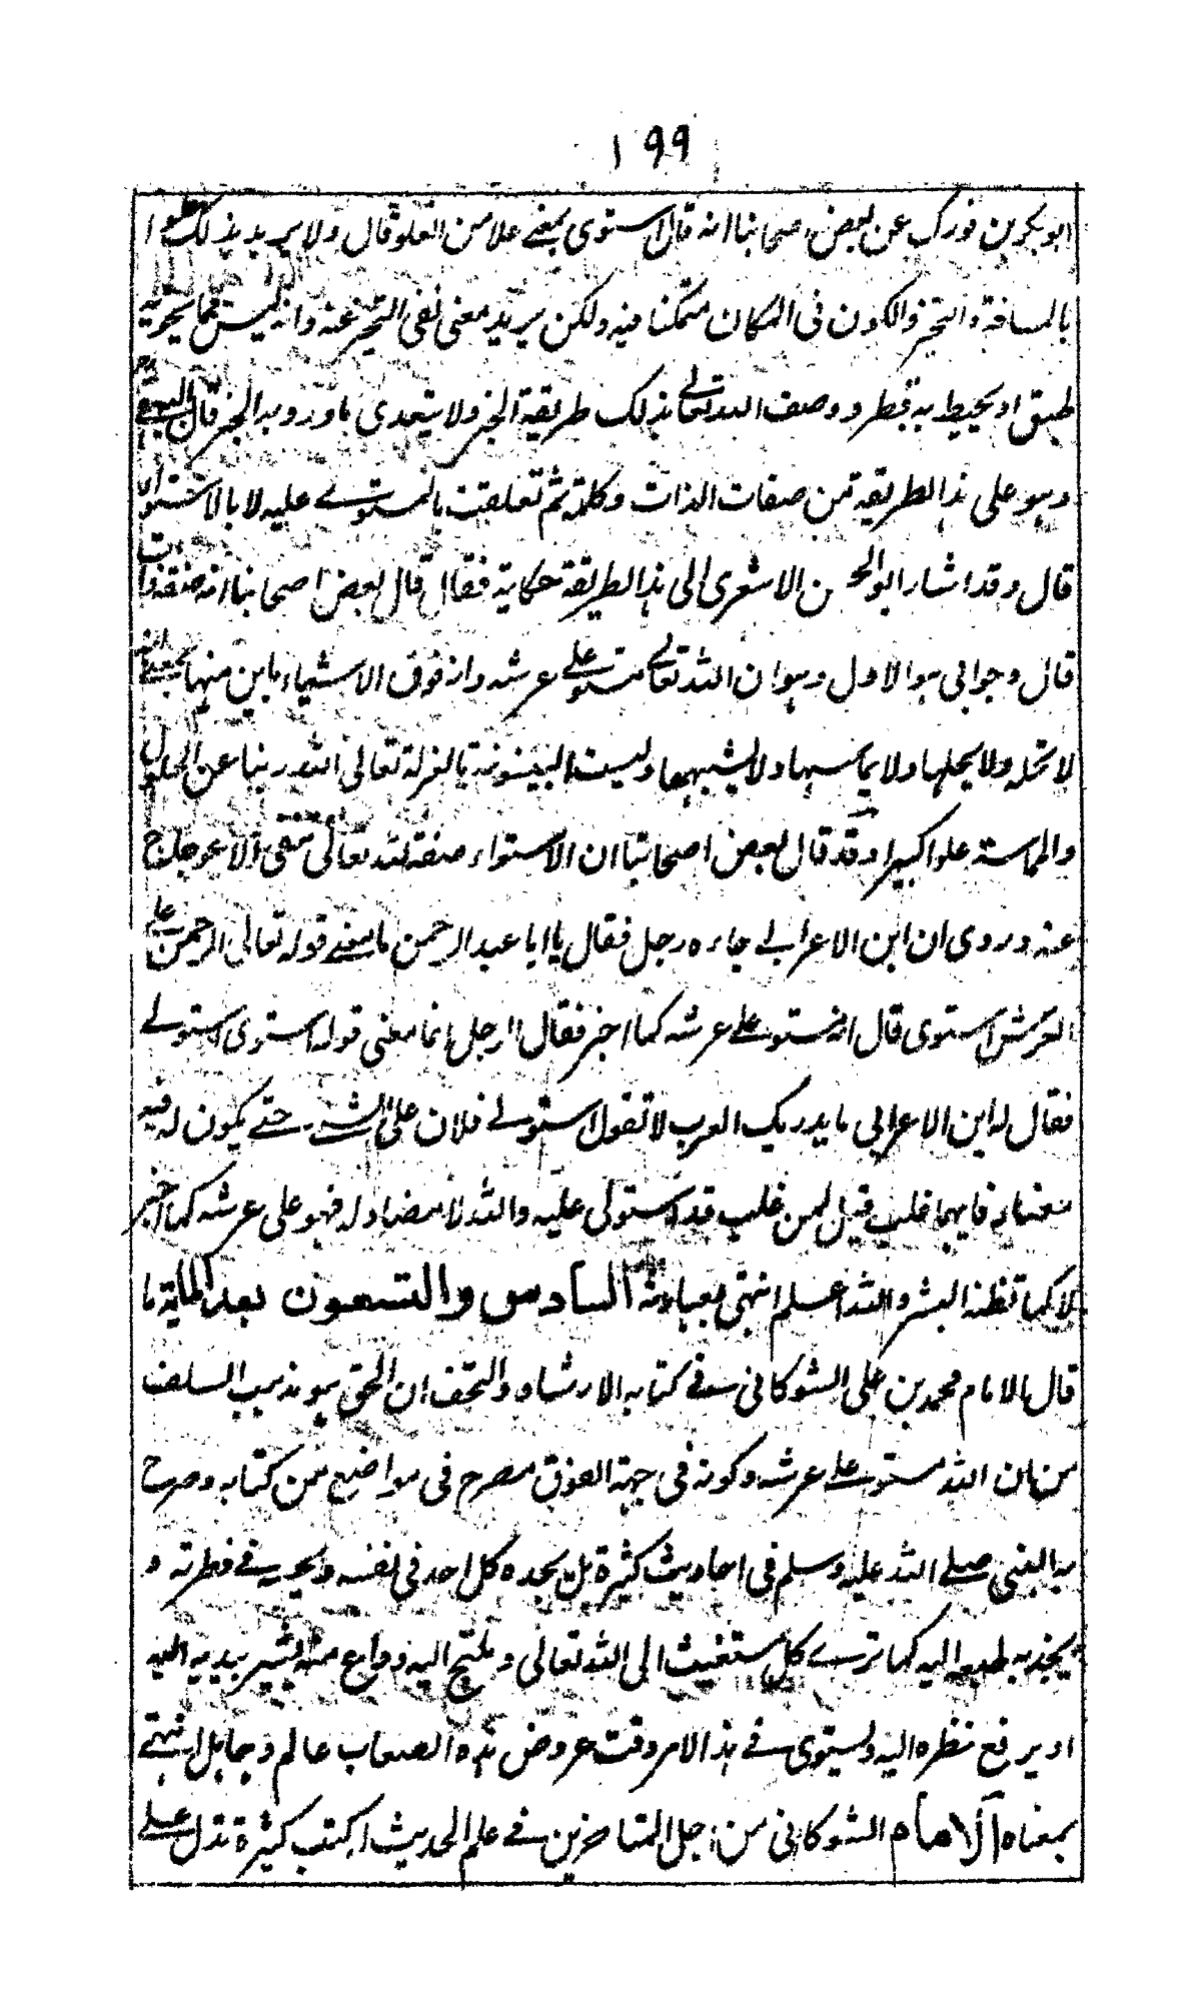 ١٩٩
ابو بكر بن فورك عن بعض اصحابنا انه قال استوى بمعنے علا من العلو قال ولا يريد بذلك علوا
بالمسافة والتحيز والكون فى المكان متمكنا فيه ولكن يريد معنى نفى التحيز عنه وانه ليس مما يحويه
طبق او يحيط به قطر ووصف الله تعالے بذلك طريقة الخبر ولا يتعدى ما ورد به الخبر قال البيهقے
وهو على هذا الطريقة من صفات الذات وكلمة ثم تعلقت بالمستوے عليه لا بالاستواء
قال وقد اشار ابو الحسن الاشعرى الى هذا الطريقة حكاية فقال قال بعض اصحابنا انه صفة ذات
قال وجوابى هو الاول وهو ان الله تعالے مستو علے عرشه وانه فوق الاشياء باين منها بمعنے انه
لا تحله ولا يحلها ولا يماسها ولا يشبهها وليست البينونة بالعزلة تعالى الله ربنا عن الحلول
والمماسة علوا كبيرا وقد قال بعض اصحابنا ان الاستواء صفة لله تعالى تنفى الاعوجاج
عنه وروى ان ابن الاعرابے جاءه رجل فقال يا ابا عبد الرحمن ما معنے قوله تعالى الرحمن علے
العرش استوى قال انه مستو علے عرشه كما اخبر فقال الرجل انما معنى قوله استوى استولے
فقال له ابن الاعرابى ما يدريك العرب لا تقول استولے فلان على الشے حتے يكون له فيه
مضاد فايهما غلب قيل لمن غلب قد استولى عليه والله لا مضاد له فهو على عرشه كما اخبر
لا كما تظنه البشر والله اعلم انتهى بعبارته السادس والتسعون بعد الماية ما
قال الامام محمد بن على الشوكانى فے كتابه الارشاد والتحف ان الحق هو مذهب السلف
من ان الله مستو علے عرشه وكونه فى جهة الفوق مصرح فى مواضع من كتابه وصرح
به النبى صلے الله عليه وسلم فى احاديث كثيرة بل يجده كل احد فى نفسه ويحسه فے فطرته و
يجذبه طبعه اليه كما ترے كل مستغيث الى الله تعالى و ملتجے اليه وداع منه يشير بيديه اليه
او يرفع نظره اليه ويستوى فے هذا الامر وقت عروض هذه الصعاب عالم وجاهل انتهے
بمعناه الامام الشوكانى من اجل المتاخرين فے علم الحديث له كتب كثيرة تدل علے